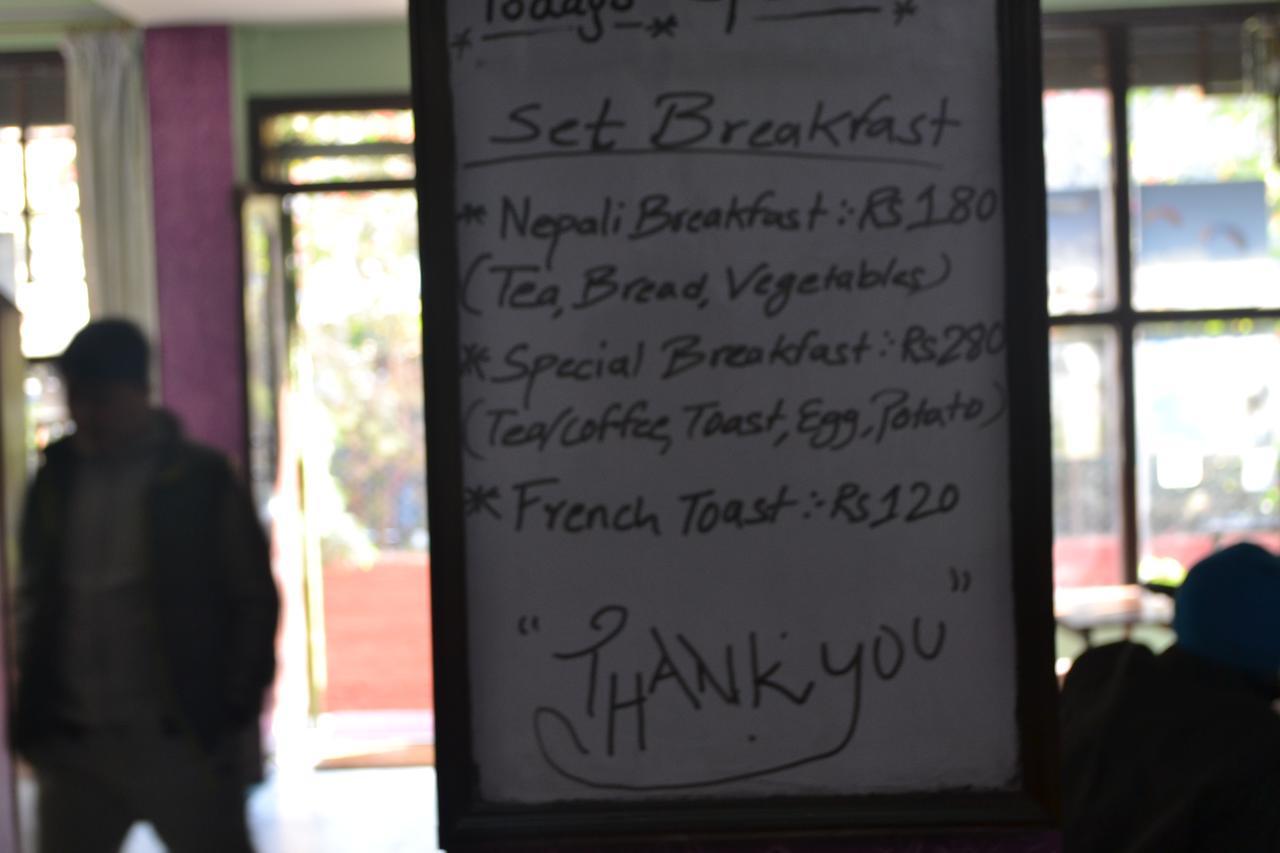 Todays
Set Breakfast
* Nepali Breakfast :- Rs 180
(Tea, Bread, Vegetables)
* Special Breakfast :- Rs 280
(Tea/coffee, Toast, Egg, Potato)
* French Toast :- Rs 120
"THANK YOU"